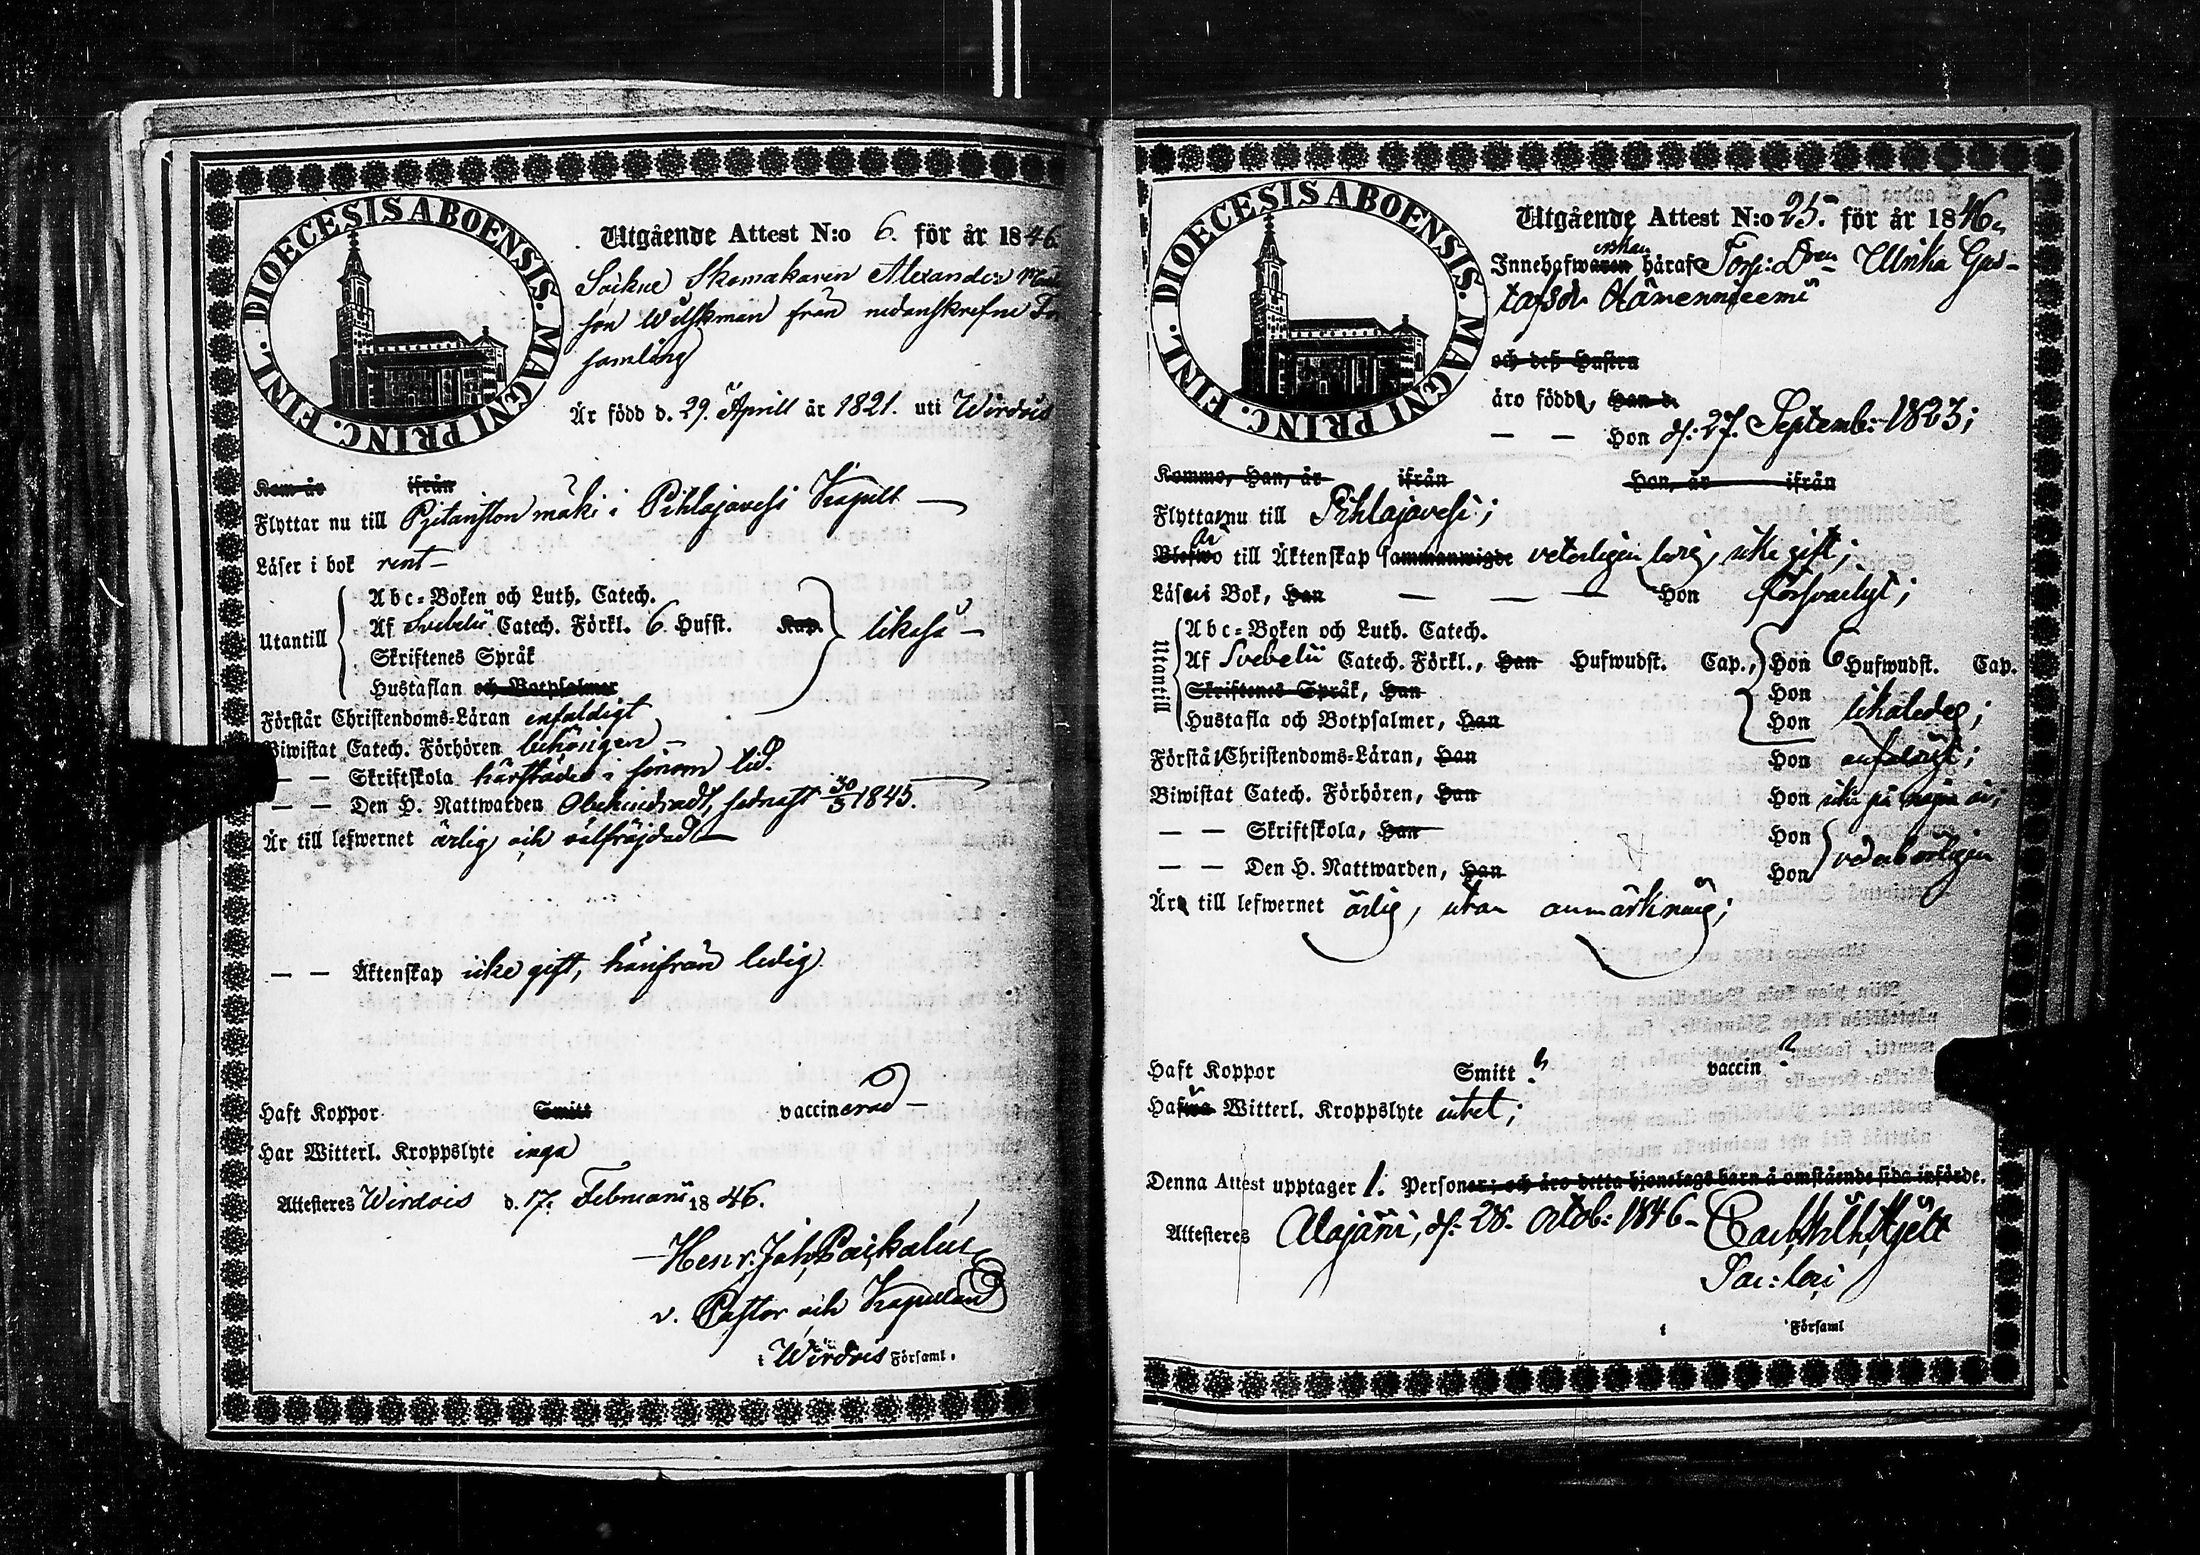 DIOECESIS ABOENSIS. MAGNI PRINC. FINL.
Utgående Attest N:o 6. för år 1846.
Sockne Skomakaren Alexander
son Wilskman från nedanskrefne För
samling
Är född d. 29. Aprill år 1821. uti Wirdois
Kom år ifrån
Flyttar nu till mäki i Pihlajavesi Kapell —
Läser i bok rent —
Utantill
Abc-Boken och Luth. Catech.
Af Svebelii Catech. Förkl. 6 Hufst. Kap. likaså —
Skriftenes Språk
Hustaflan och Botpsalmer
Förstår Christendoms-Läran enfaldigt
Biwistat Catech. Förhören behörigen —
— — Skriftskola härstädes i sinom tid.
— — Den H. Nattwarden Obehindradt, sednast 30/3 1845.
Är till lefwernet ärlig och välfräjdad —
— — Äktenskap icke gift, härifrån ledig
Haft Koppor Smitt vaccinerad —
Har Witterl. Kroppslyte inga
Attesteres Wirdois d. 17. Februarii 1846.
Henr. Joh. Paskalin
v. Pastor och Kapellan
i Wirdois Församl.
DIOECESIS ABOENSIS. MAGNI PRINC. FINL.
Utgående Attest N:o 25. för år 1846.
Innehafwaren häraf Torp: Dren Ulrika Gus-
tafsdr Hänenniemi
och deß Hustru
äro födde, Han d.
— — Hon d: 27. Septemb: 1823;
Komme, Han, år ifrån Hon, år ifrån
Flyttar nu till Pihlajavesi;
Blefwo till Äktenskap sammanwigde veterligen ledig, icke gift;
Läsa i Bok, Han — — — Hon försvarligt;
Utantill
Abc-Boken och Luth. Catech.
Af Svebelii Catech. Förkl., Han Hufwudst. Cap., Hon 6 Hufwudst. Cap.
Skriftenes Språk, Han Hon
Hustafla och Botpsalmer, Han Hon likaledes;
Förstå Christendoms-Läran, Han Hon enfaldigt;
Biwistat Catech. Förhören, Han Hon icke på några år;
— — Skriftskola, Han Hon
— — Den H. Nattwarden, Han Hon vederbörligen
Är till lefwernet ärlig, utan anmärkning;
Haft Koppor Smitt ? vaccin ?
Hafwa Witterl. Kroppslyte intet;
Denna Attest upptager 1. Personer; och äro detta hjonelags barn å omstående sida införde.
Attesteres Alajärvi, d: 28. Octob: 1846. Carl Wilh. Hjelt
Sac: loci
i Församl